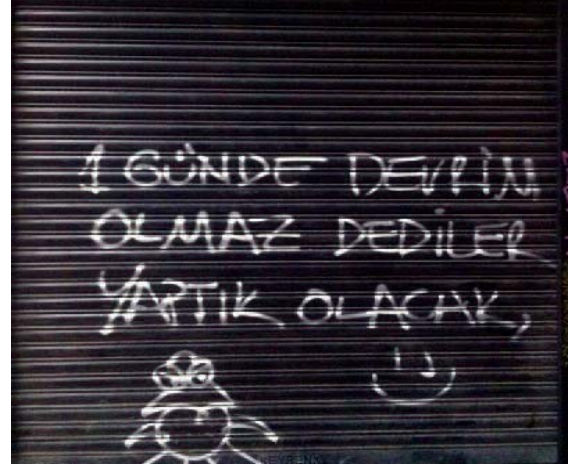 1 GÜNDE DEVRİM
OLMAZ DEDİLER
YAPTIK OLACAK,